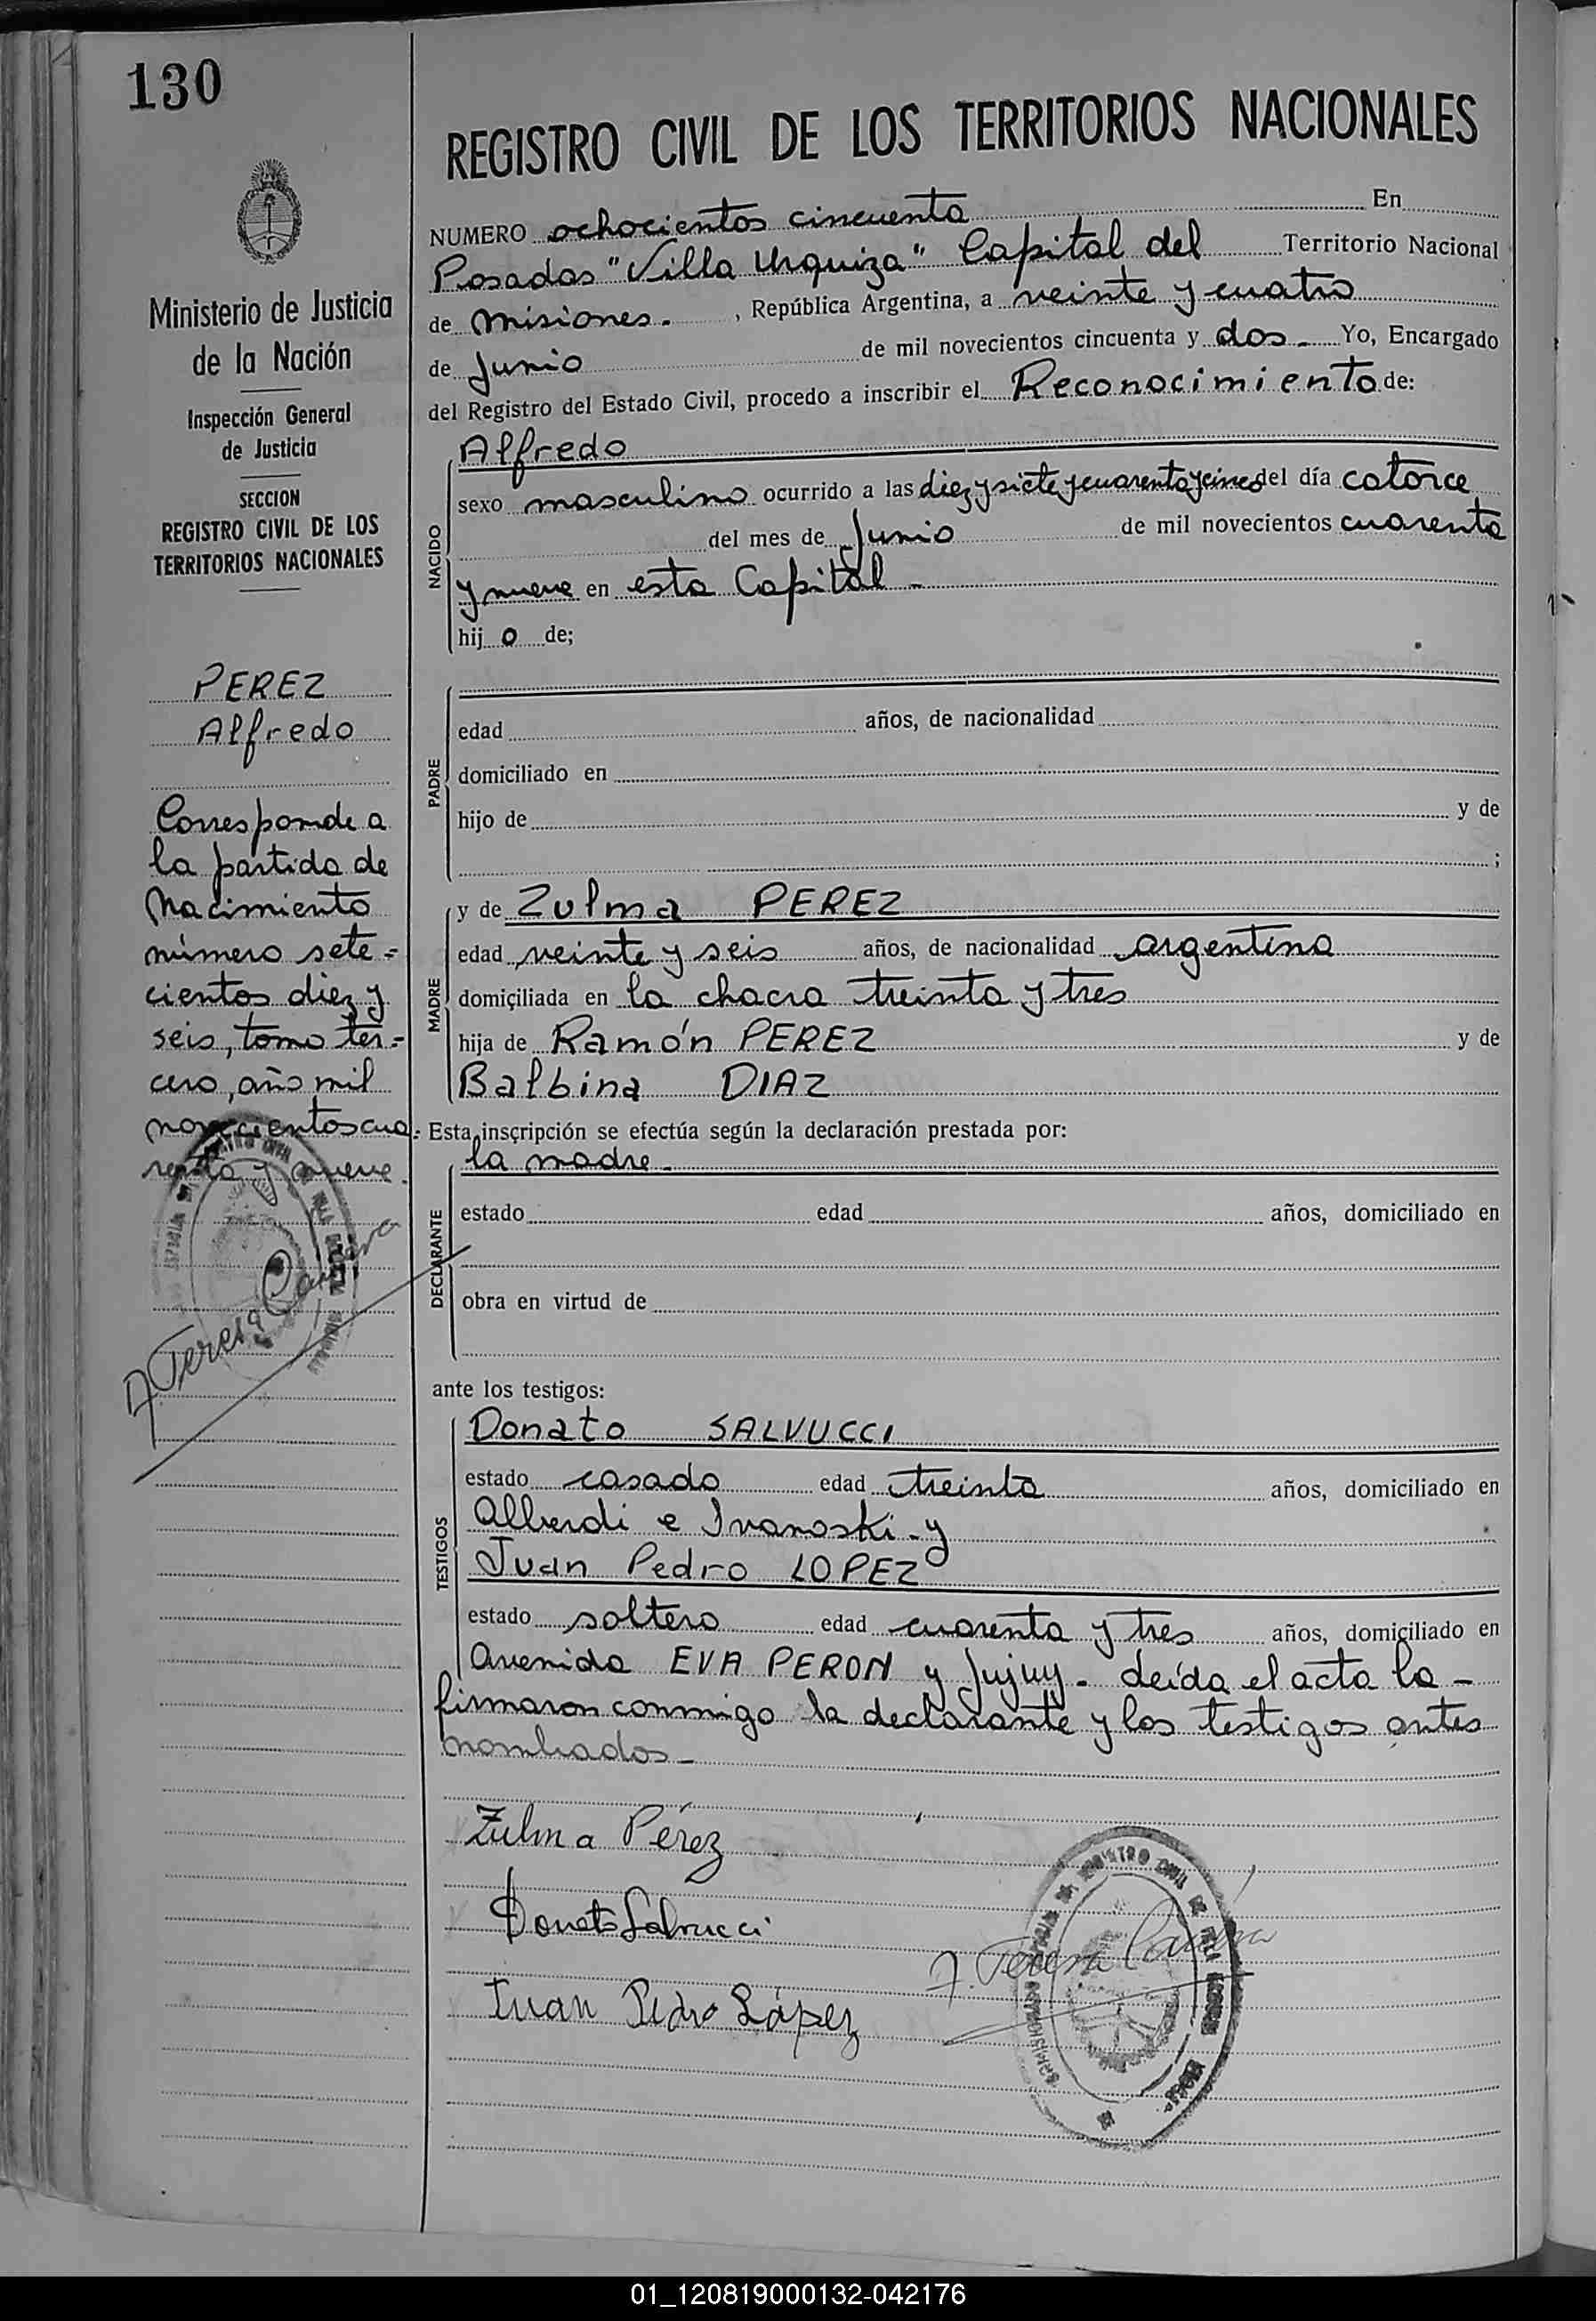 130
REGISTRO CIVIL DE LOS TERRITORIOS NACIONALES
Ministerio de Justicia
de la Nación
Inspección General
de Justicia
SECCION
REGISTRO CIVIL DE LOS
TERRITORIOS NACIONALES
PEREZ
Alfredo
Corresponde a
la partida de
Nacimiento
número sete=
cientos diez y
seis, tomo ter=
cero, año mil
novecientos cua=
renta y nueve.
NUMERO ochocientos cincuenta En
Posadas "Villa Urquiza" Capital del Territorio Nacional
de Misiones. , República Argentina, a veinte y cuatro
de Junio de mil novecientos cincuenta y dos - Yo, Encargado
del Registro del Estado Civil, procedo a inscribir el Reconocimiento de:
NACIDO
Alfredo
sexo masculino ocurrido a las diez y siete y cuarenta y cinco del día catorce
del mes de Junio de mil novecientos cuarenta
y nueve en esta Capital -
hij o de;
PADRE
edad años, de nacionalidad
domiciliado en
hijo de y de
;
MADRE
y de Zulma PEREZ
edad veinte y seis años, de nacionalidad argentina
domiciliada en la chacra treinta y tres
hija de Ramón PEREZ y de
Balbina DIAZ
Esta inscripción se efectúa según la declaración prestada por:
DECLARANTE
la madre -
estado edad años, domiciliado en
obra en virtud de
ante los testigos:
TESTIGOS
Donato SALVUCCI
estado casado edad treinta años, domiciliado en
Alberdi e Ivanoski - y
Juan Pedro LOPEZ
estado soltero edad cuarenta y tres años, domiciliado en
Avenida EVA PERON y Jujuy - Leída el acta la -
firmaron conmigo la declarante y los testigos antes
nombrados -
Zulma Pérez
Donato Salvucci
Teresa
Juan Pedro López
01_120819000132-042176